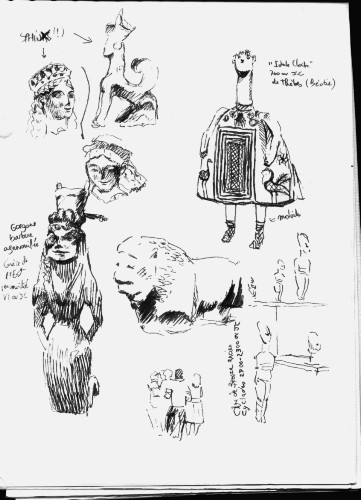 SPHINX !!)
"Idole Cloche"
700 av JC
de Thèbes (Béotie)
Gorgone
barbue
agenouillée
Grèce de
l'EST
VI av JC
← mobile
Cyclades 2700-2300 av JC